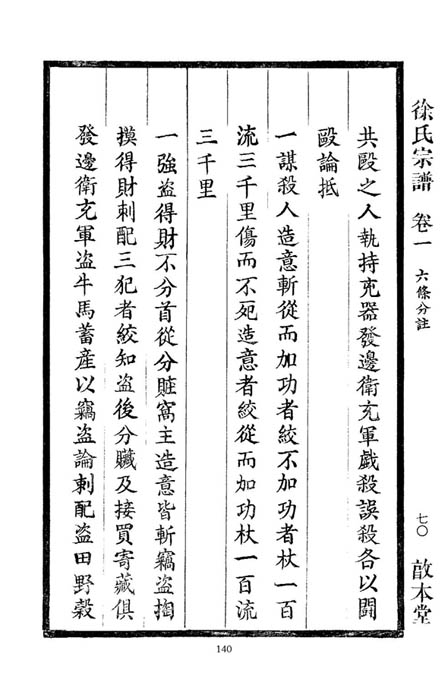 徐氏宗譜 卷一 六條分註 七〇 敨本堂
共毆之人執持兇器發邊衛充軍戲殺誤殺各以鬪
毆論抵
一謀殺人造意斬從而加功者絞不加功者杖一百
流三千里傷而不死造意者絞從而加功杖一百流
三千里
一強盜得財不分首從分賍窩主造意皆斬竊盜掏
摸得財刺配三犯者絞知盜後分贓及接買寄藏俱
發邊衛充軍盜牛馬蓄産以竊盜論刺配盜田野穀
140